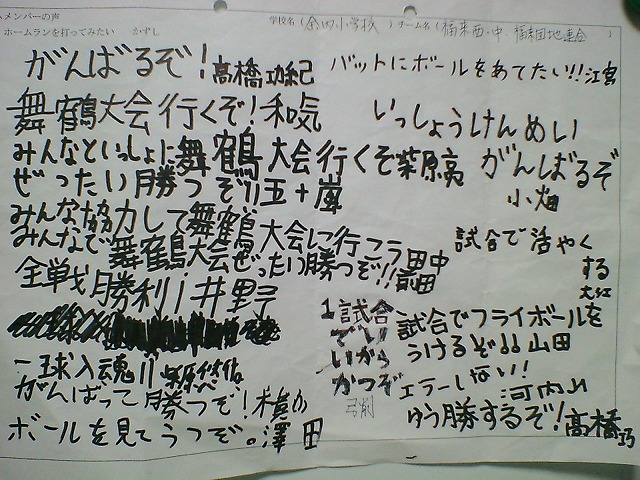 メンバーの声
ホームランを打ってみたい かずし
学校名（余内小学校）チーム名（福来西・中・福来団地連合）
がんばるぞ！高橋功紀
舞鶴大会行くぞ！和気
みんなといっしょに舞鶴大会行くぞ柴原亮
ぜったい勝つぞ!!五十嵐
みんな協力して舞鶴大会に行こう田中
みんなで舞鶴大会ぜったい勝つぞ!!前田
全戦勝利！井野
一球入魂!!柴原
がんばって勝つぞ！横山
ボールを見てうつぞ。澤田
バットにボールをあてたい!!江宮
いっしょうけんめい
がんばるぞ
小畑
試合で活やく
する
大江
1試合
でい
いから
かつぞ
弓削
試合でフライボールを
うけるぞ!!山田
エラーしない！
河内山
ゆう勝するぞ！高橋巧